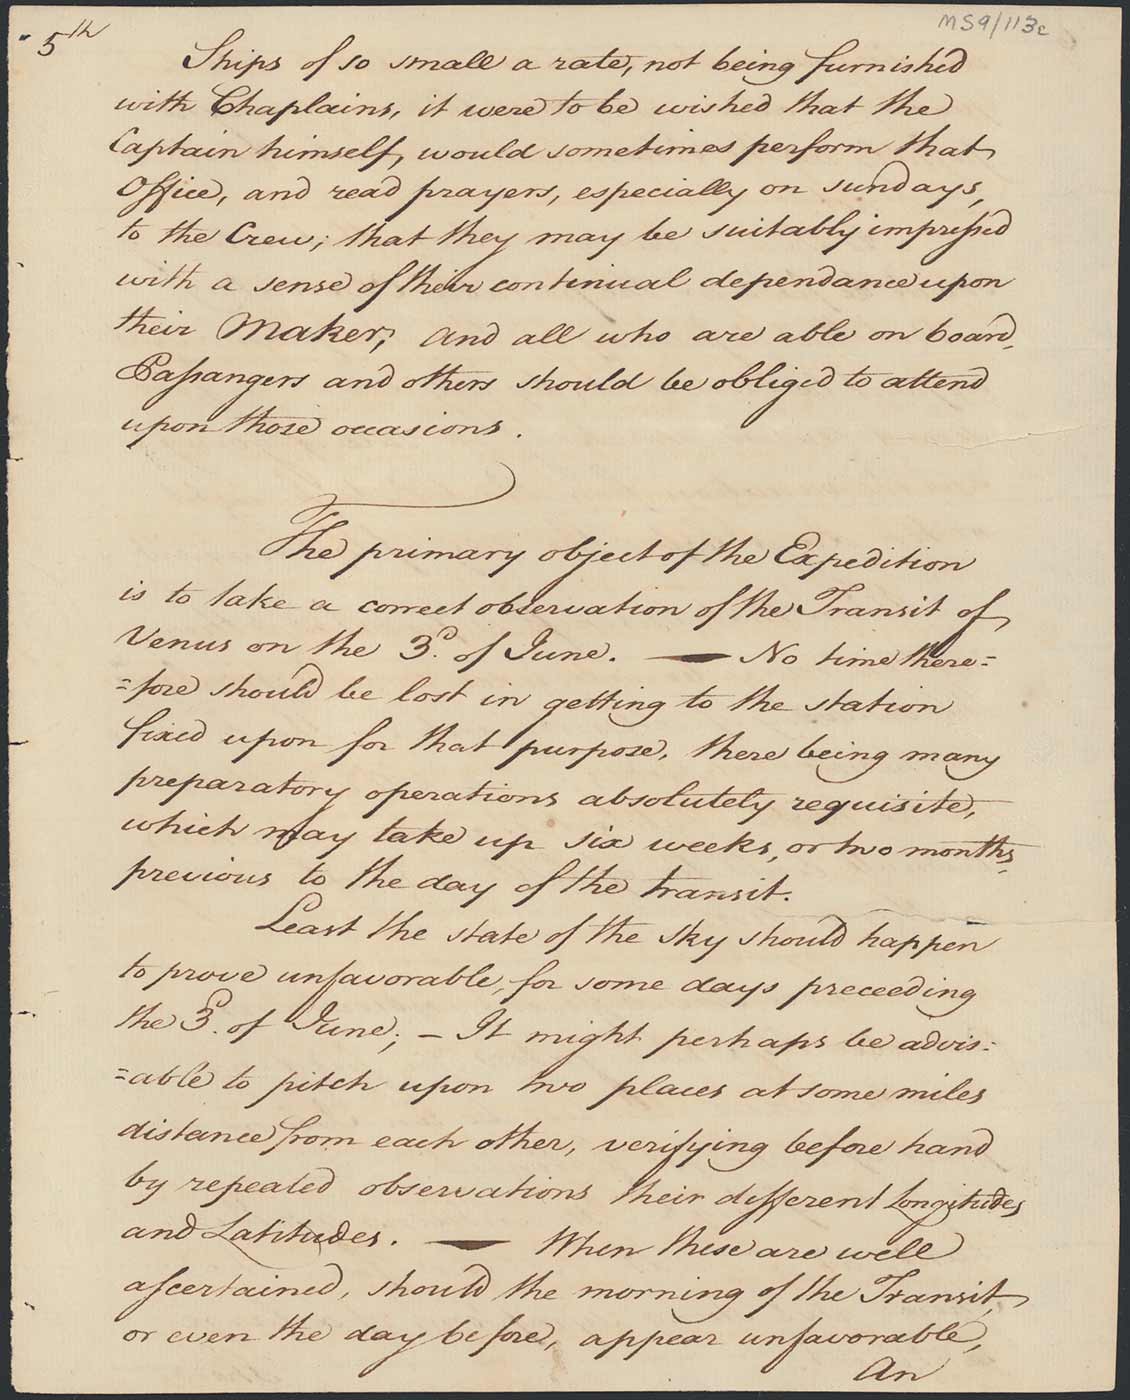 MS9/113c
5th
Ships of so small a rate, not being furnished
with Chaplains, it were to be wished that the
Captain himself, would sometimes perform that
Office, and read prayers, especially on sundays,
to the Crew; that they may be suitably impressed
with a sense of their continual dependance upon
their Maker; and all who are able on board,
Passangers and others should be obliged to attend
upon those occasions.
The primary object of the Expedition
is to take a correct observation of the Transit of
Venus on the 3d. of June. — No time there=
=fore should be lost in getting to the station
fixed upon for that purpose, there being many
preparatory operations absolutely requisite,
which may take up six weeks, or two months,
previous to the day of the transit.
Least the state of the sky should happen
to prove unfavorable, for some days preceeding
the 3d. of June; — It might perhaps be advis=
=able to pitch upon two places at some miles
distance from each other, verifying before hand
by repeated observations their different Longitudes
and Latitudes. — When these are well
ascertained, should the morning of the Transit,
or even the day before, appear unfavorable,
An